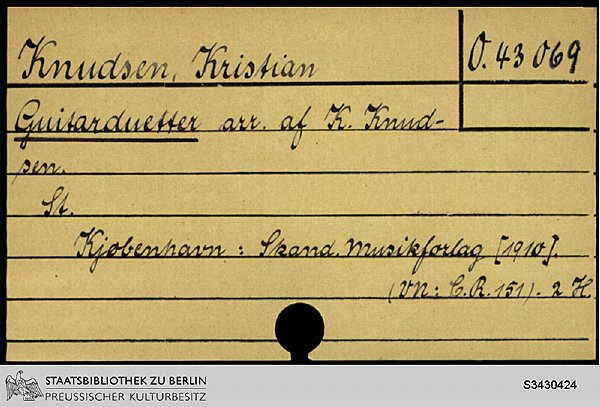 Knudsen, Kristian
O. 43 069
Guitarduetter arr. af K. Knud-
sen.
St.
Kjøbenhavn : Skand. Musikforlag [1910].
(VN: C.R. 151). 2 H.
STAATSBIBLIOTHEK ZU BERLIN
PREUSSISCHER KULTURBESITZ
S3430424